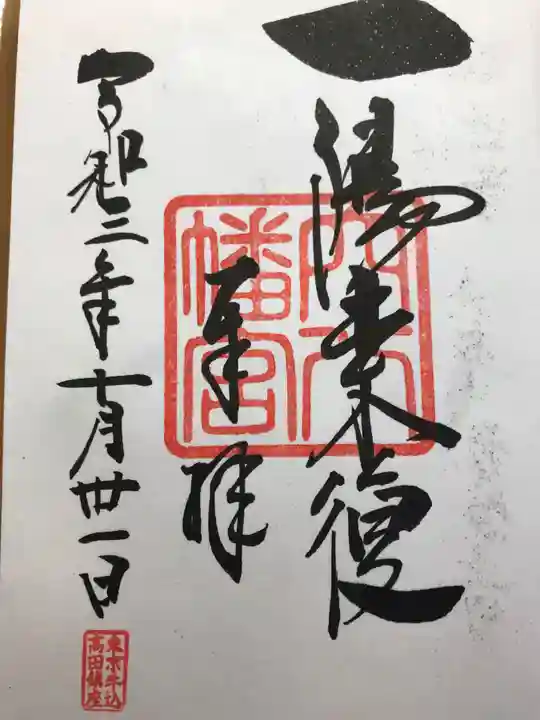 一陽来復
奉拝
穴八
幡宮
令和三年十月丗一日
東京牛込
高田鎮座